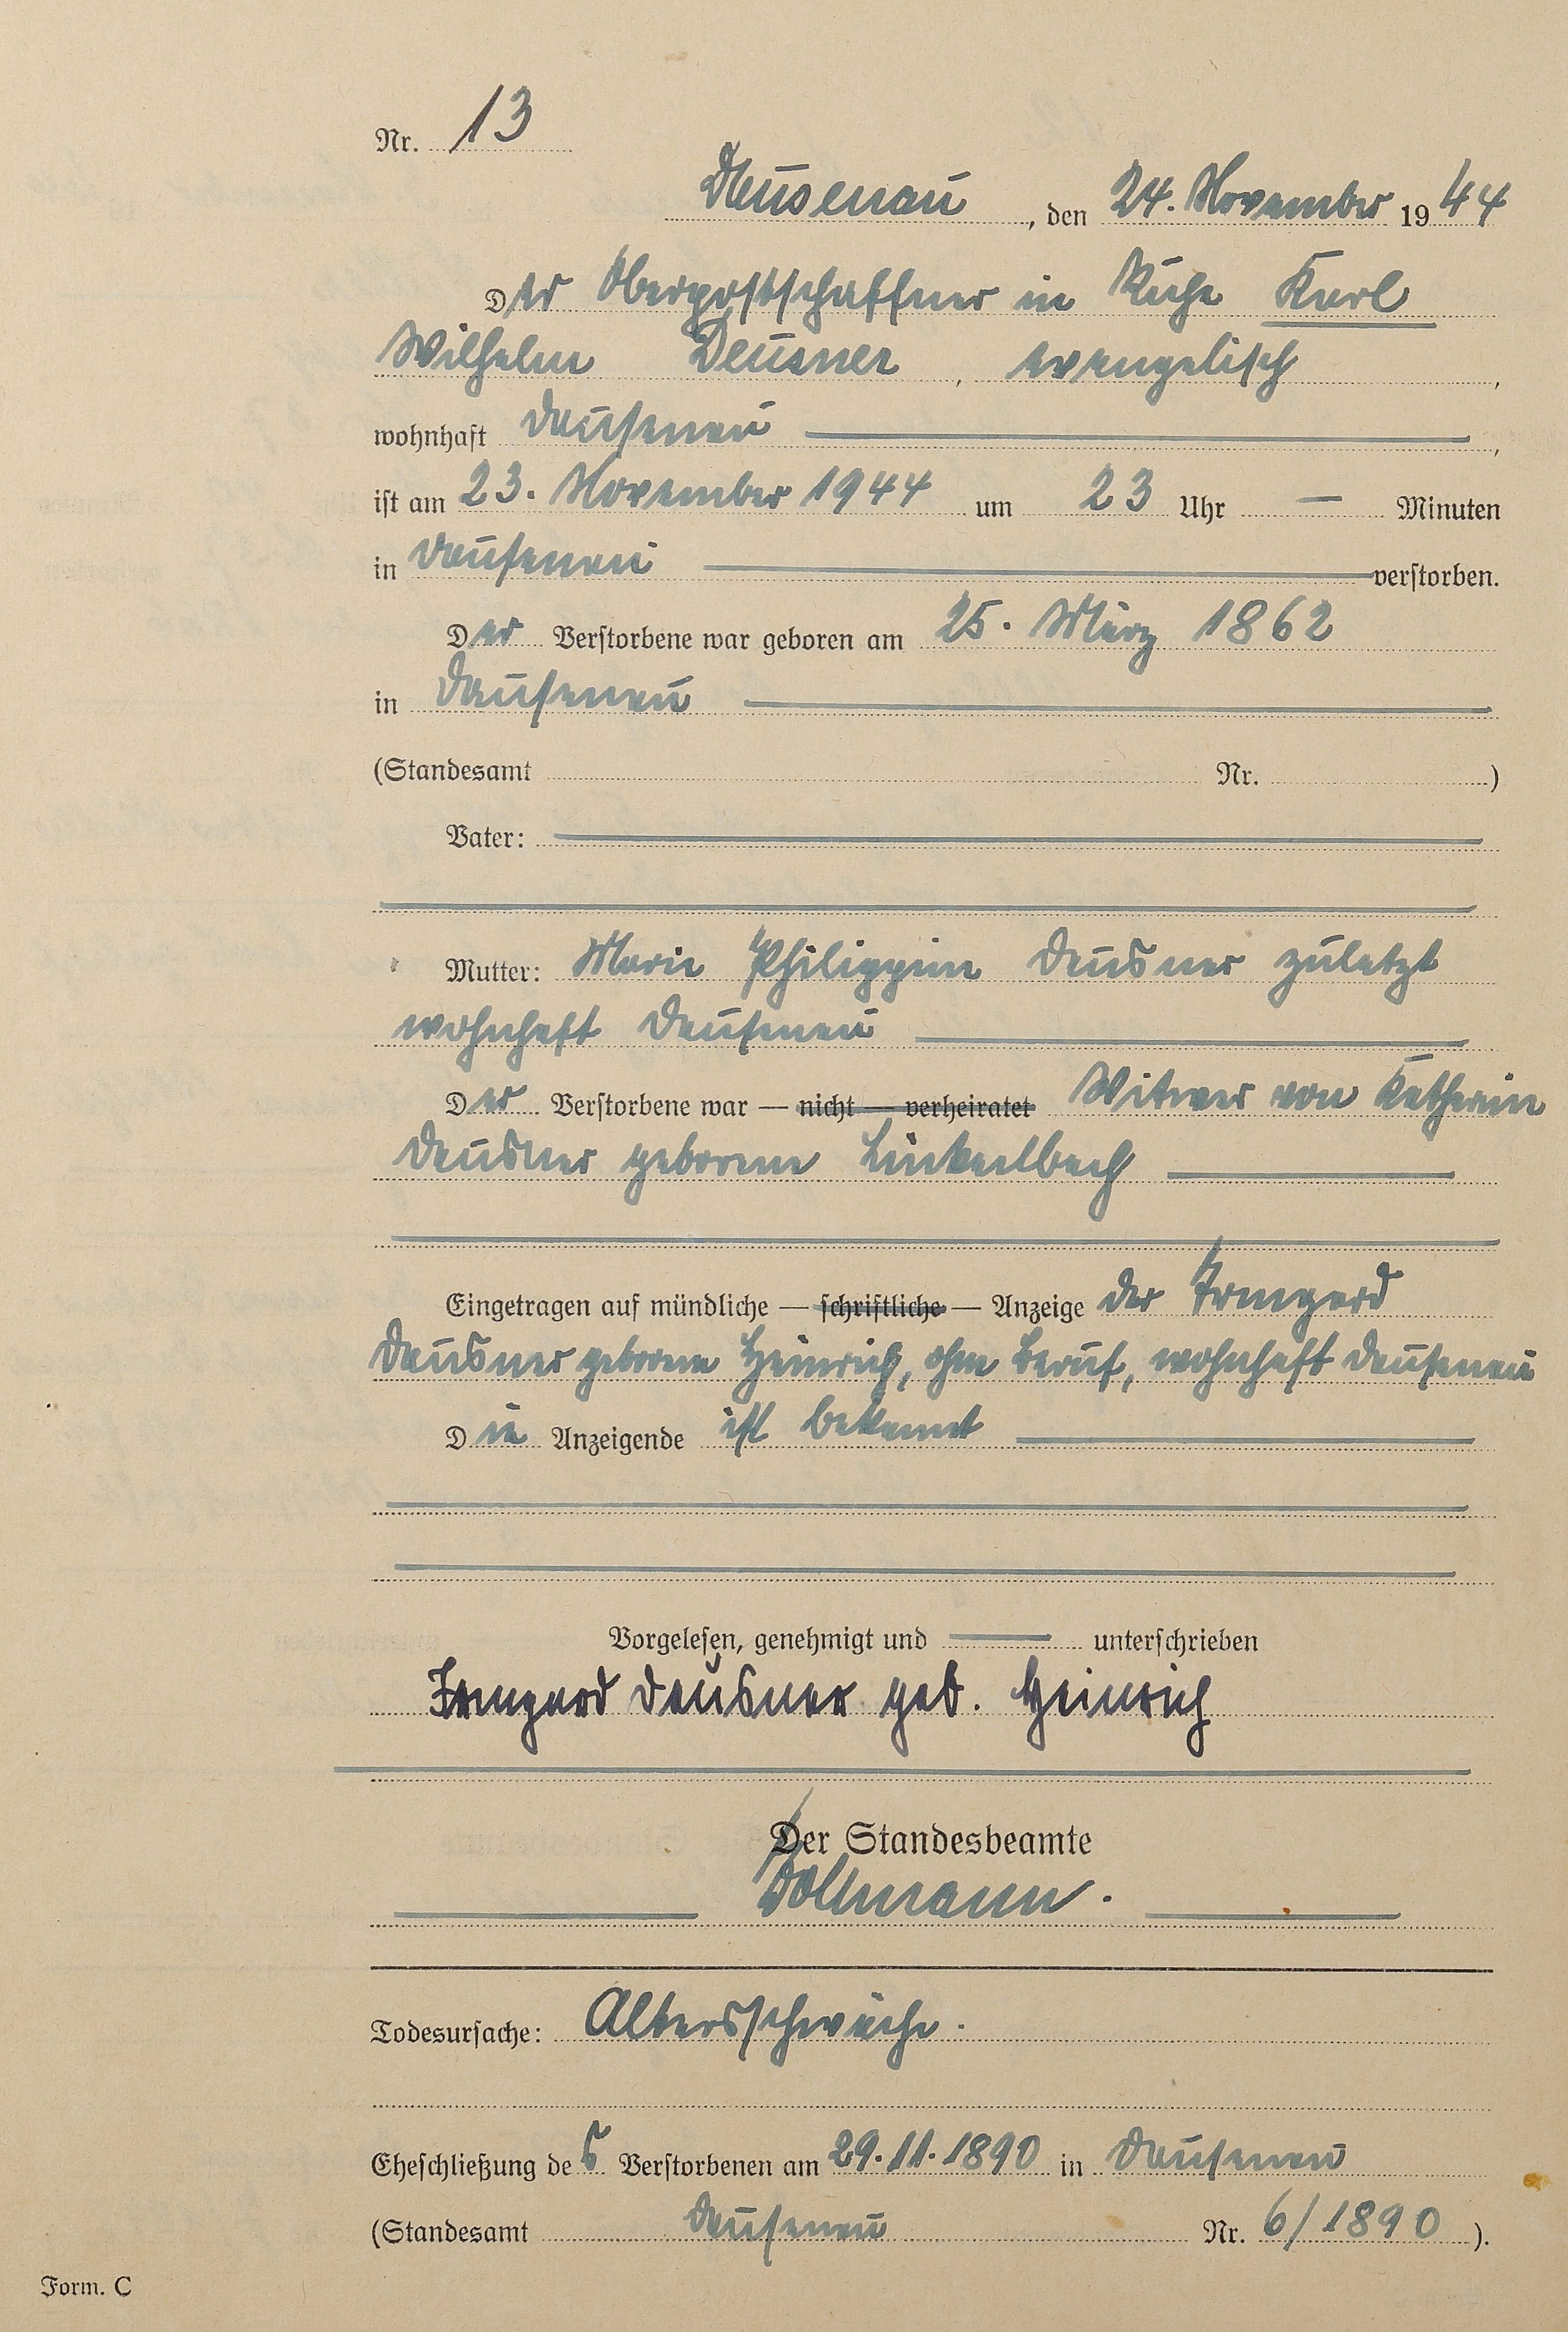 Nr. 13
Dausenau, den 24. November 1944
Der Oberpostschaffner in Ruhe Karl
Wilhelm Deusner, evangelisch,
wohnhaft Dausenau,
ist am 23. November 1944 um 23 Uhr — Minuten
in Dausenau verstorben.
Der Verstorbene war geboren am 25. März 1862
in Dausenau
(Standesamt Nr. )
Vater:
Mutter: Marie Philippine Deusner zuletzt
wohnhaft Dausenau
Der Verstorbene war — nicht — verheiratet Witwer von Katharin
Deusner geborene Linkelbach
Eingetragen auf mündliche — schriftliche — Anzeige der Irmgard
Deusner geborene Heinrich, ohne Beruf, wohnhaft Dausenau
Die Anzeigende ist bekannt
Vorgelesen, genehmigt und — unterschrieben
Irmgard Deusner geb. Heinrich
Der Standesbeamte
Vollmann.
Todesursache: Altersschwäche.
Eheschließung des Verstorbenen am 29.11.1890 in Dausenau
(Standesamt Dausenau Nr. 6/1890).
Form. C